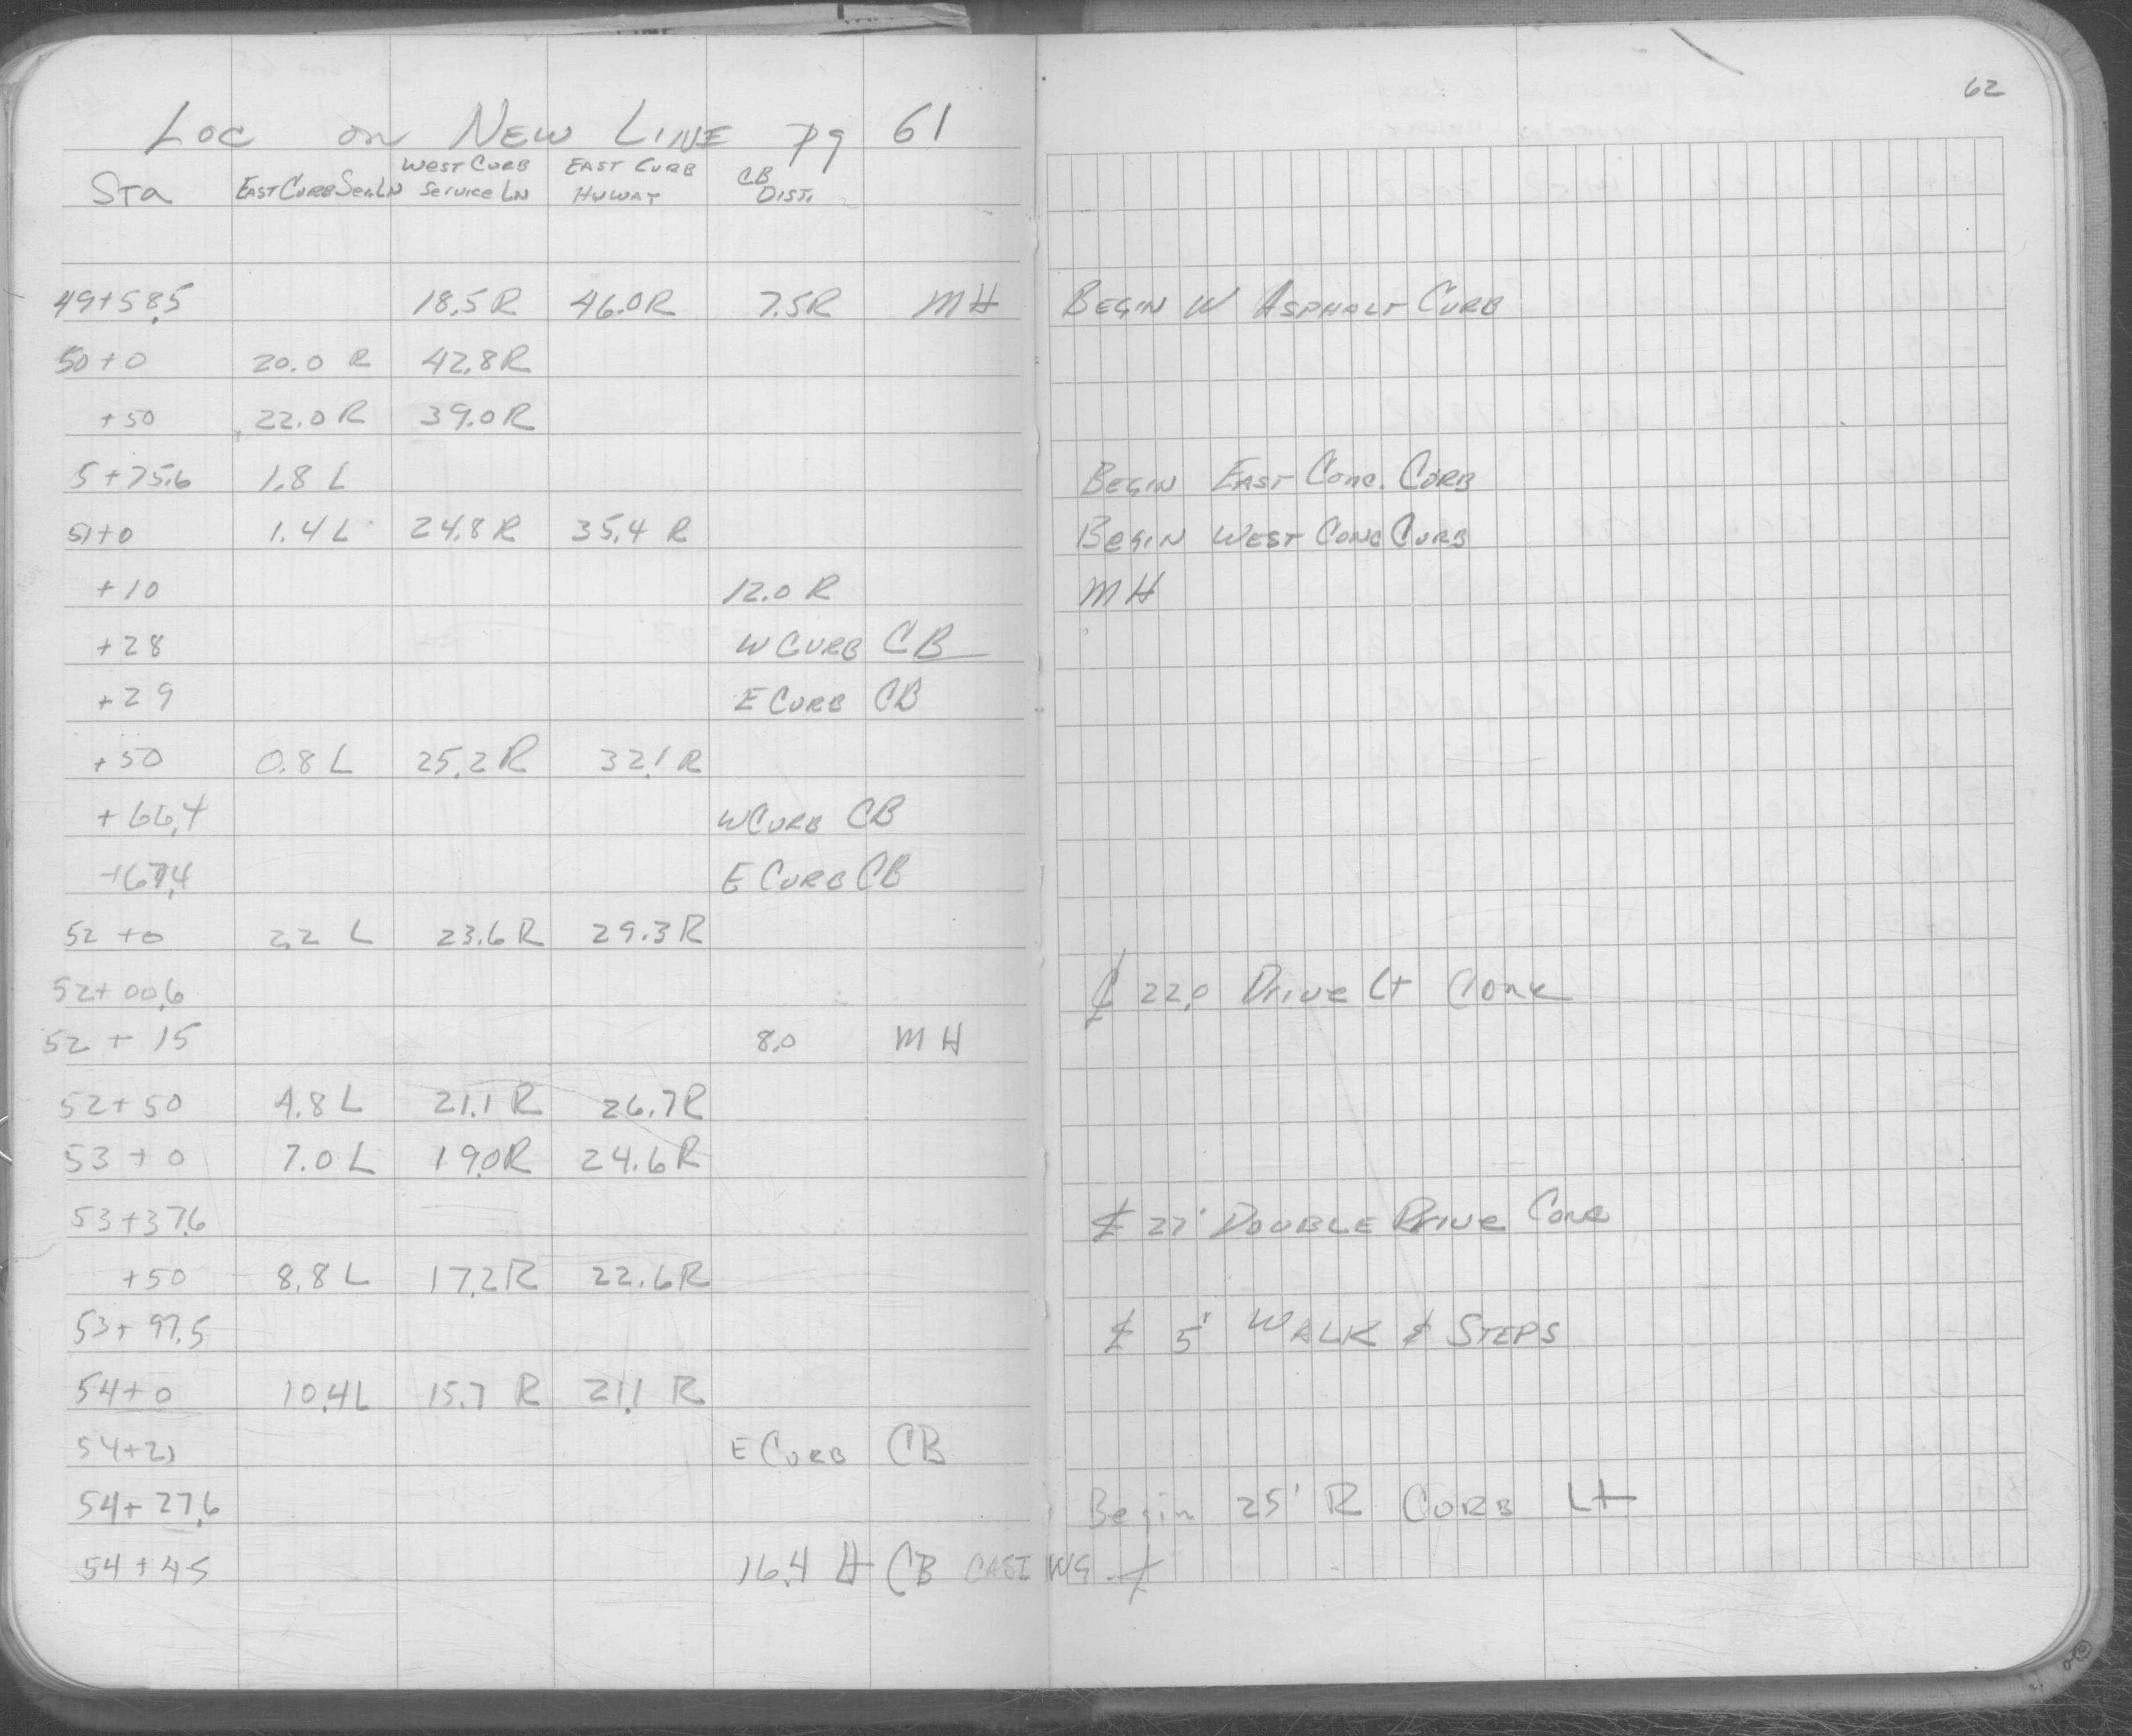 62
Loc on New Line pg 61
Sta East Curb Ser. Ln West Curb Service Ln East Curb Hyway CB Dist.
49+58.5 18.5 R 46.0 R 7.5 R MH Begin W Asphalt Curb
50+0 20.0 R 42.8 R
+50 22.0 R 39.0 R
5+75.6 1.8 L Begin East Conc. Curb
51+0 1.4 L 24.8 R 35.4 R Begin West Conc Curb
+10 12.0 R MH
+28 W Curb CB
+29 E Curb CB
+50 0.8 L 25.2 R 32.1 R
+66.4 W Curb CB
+67.4 E Curb CB
52+0 2.2 L 23.6 R 29.3 R
52+00.6 ℄ 22.0 Drive Lt Conc
52+15 8.0 MH
52+50 4.8 L 21.1 R 26.7 R
53+0 7.0 L 19.0 R 24.6 R
53+37.6 ℄ 27' Double Drive Conc
+50 8.8 L 17.2 R 22.6 R
53+97.5 ℄ 5' Walk & Steps
54+0 10.4 L 15.7 R 21.1 R
54+21 E Curb CB
54+27.6 Begin 25' R Curb Lt
54+45 16.4 Lt CB Casting ℄